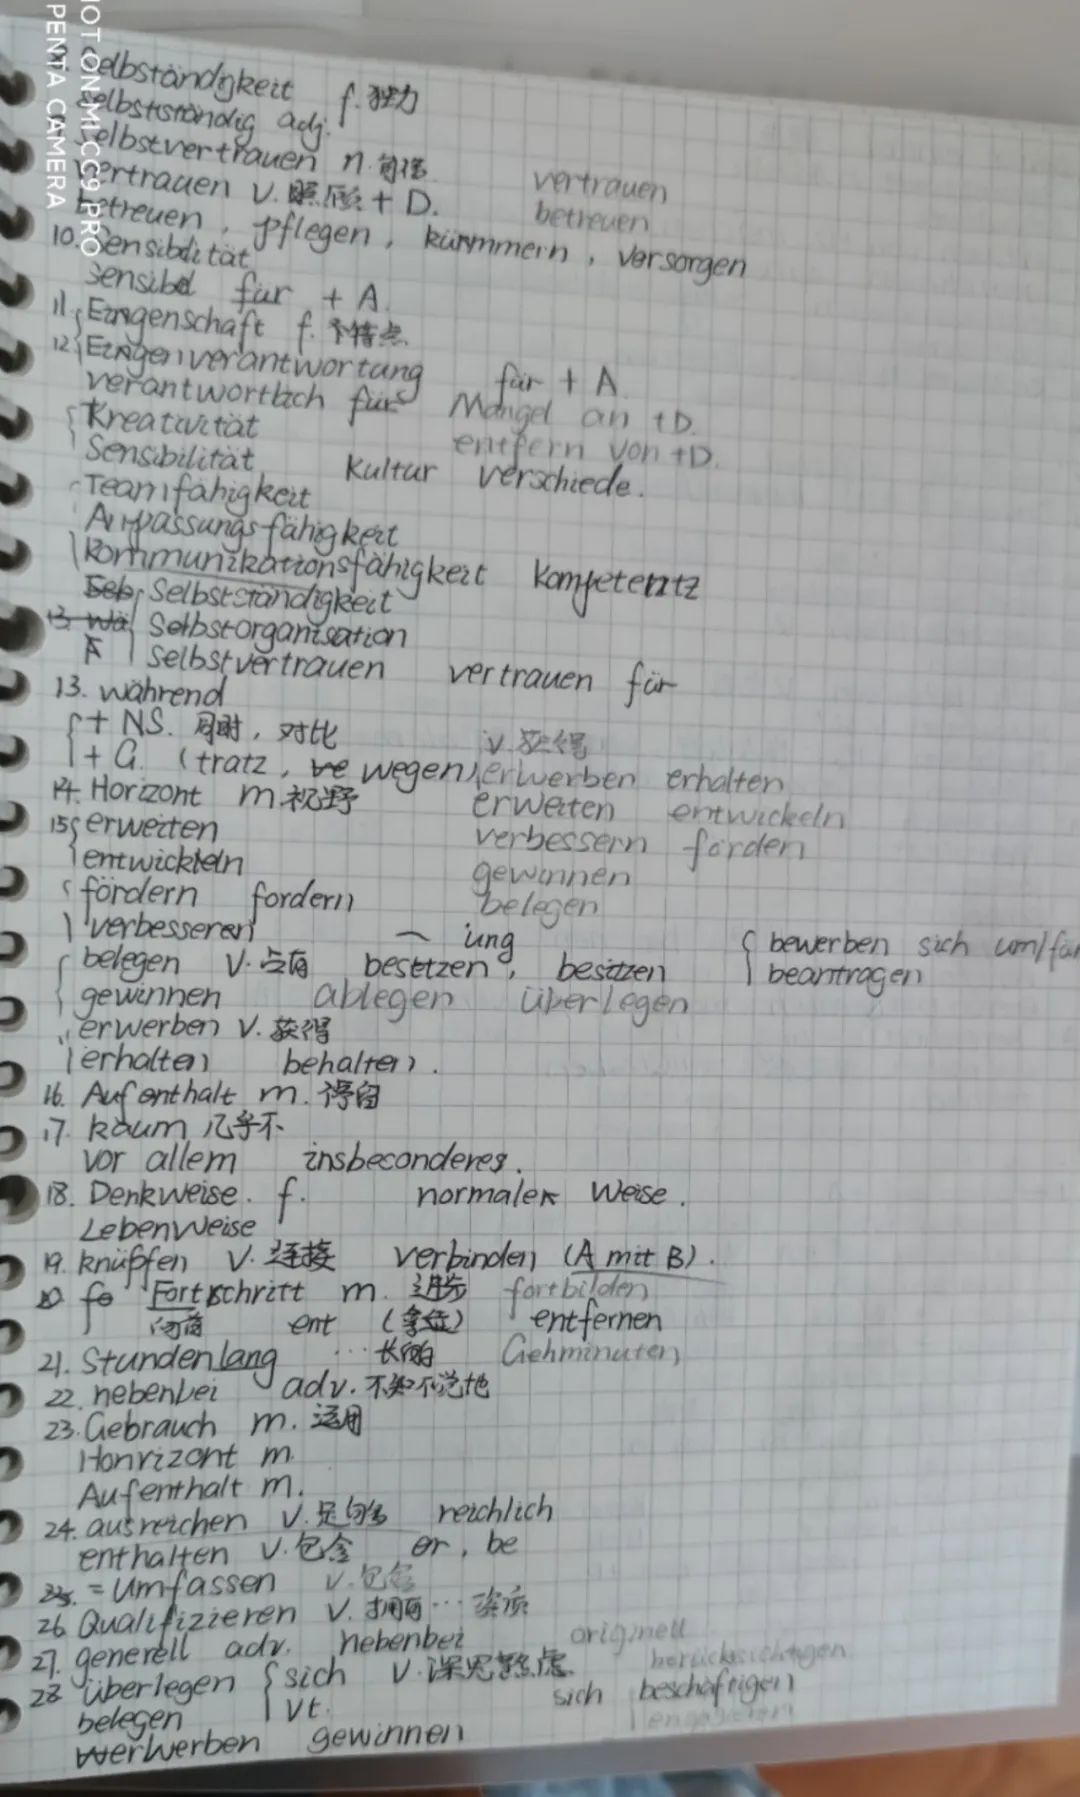 SHOT ON MI CC9 PRO
PENTA CAMERA
Selbständigkeit f. 独力
selbstständig adj.
Selbstvertrauen n. 自信 vertrauen
vertrauen v. 照顾 + D. betreuen
betreuen, pflegen, kümmern, versorgen
10. Sensibilität
sensibel für + A.
11. Eingenschaft f. 个特点
12. Eingenverantwortung für + A
verantwortlich für Mangel an + D.
Kreativität entfern von + D.
Sensibilität Kultur verschiede.
Teamfähigkeit
Anpassungsfähigkeit
kommunikationsfähigkeit Kompetentz
Selbstständigkeit
Selbstorganisation
Selbstvertrauen vertrauen für
13. während
+ NS. 同时, 对比 v. 获得
+ G. (tratz, wegen) erwerben erhalten
14. Horizont m. 视野 erweiten entwickeln
15. erweiten verbessern förden
entwickteln gewinnen
fördern fordern belegen
verbesseren ung bewerben sich um/für
belegen v. 占有 besetzen, besitzen beantragen
gewinnen ablegen überlegen
erwerben v. 获得
erhalten behalten.
16. Aufenthalt m. 停留
17. kaum 几乎不
vor allem insbeconderes.
18. Denkweise. f. normaler Weise.
LebenWeise
19. knüpfen v. 连接 verbinden (A mit B).
Fortschritt m. 进步 fortbilden
向前 ent entfernen
21. Stundenlang ... 长的 Gehminuten
22. nebenbei adv. 不知不觉地
23. Gebrauch m. 运用
Honrizont m.
Aufenthalt m.
24. ausreichen v. 足够 reichlich
enthalten v. 包含 er, be
= umfassen v. 包含
26. Qualifizieren v. 拥有... 资质
27. generell adv. nebenbei originell
28. überlegen sich v. 深思熟虑 berücksichtigen
belegen vt. sich beschäftigen
erwerben gewinnen engagieren